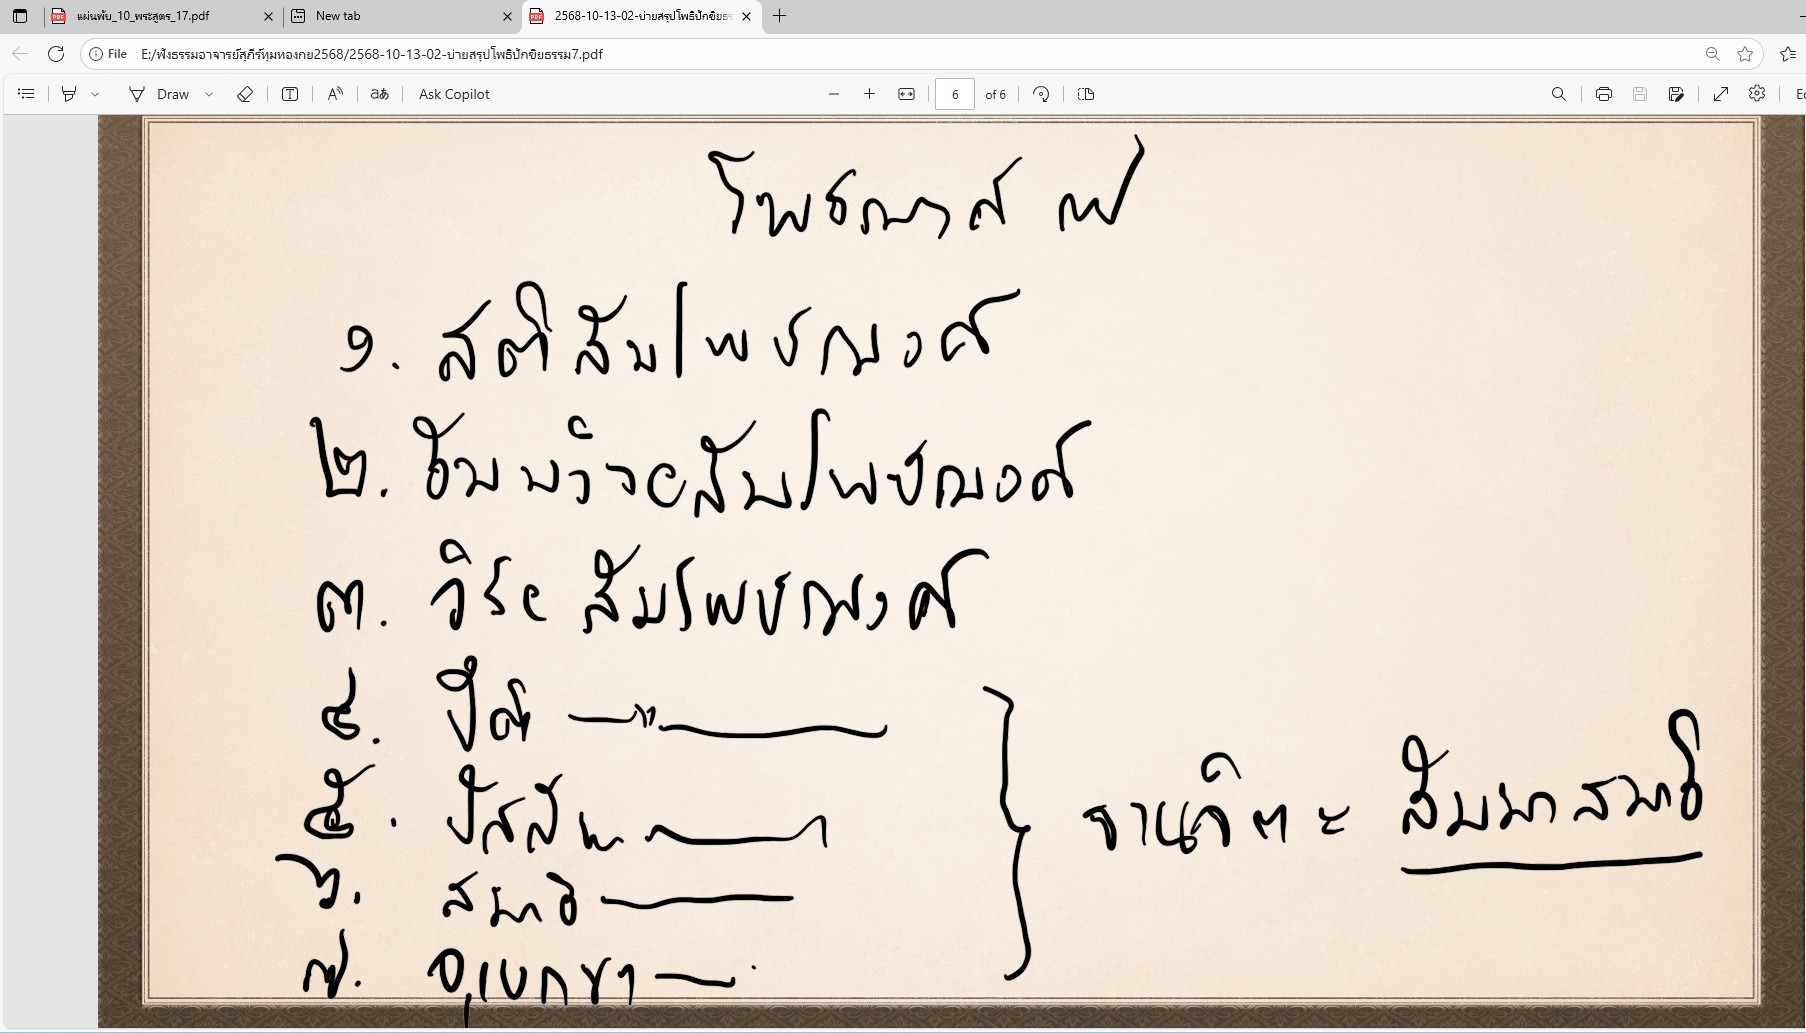 แผ่นพับ_10_พระสูตร_17.pdf
New tab
2568-10-13-02-บ่ายสรุปโพธิปักขิยธร
File E:/ฟังธรรมอาจารย์สุภีร์ทุมทองกย2568/2568-10-13-02-บ่ายสรุปโพธิปักขิยธรรม7.pdf
Draw aあ Ask Copilot 6 of 6
โพชฌงค์ ๗
๑. สติสัมโพชฌงค์
๒. ธัมมวิจยสัมโพชฌงค์
๓. วิริยสัมโพชฌงค์
๔. ปีติ — " —
๕. ปัสสัท —
๖. สมาธิ —
๗. อุเบกขา —
ฌานจิต = สัมมาสมาธิ